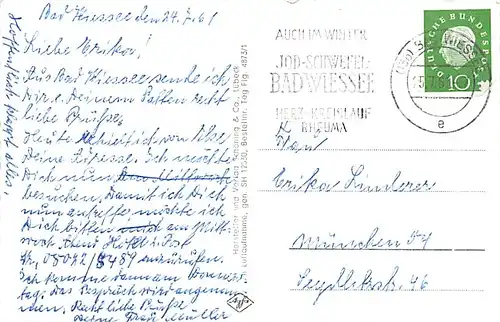 Bad Wiessee den 24.7.61
Liebe Erika!
Aus Bad Wiessee sende ich
Dir u. Deinem Gatten recht
liebe Grüße.
Heute erhielt ich von Ilse
Deine Adresse. Ich möchte
Dich nun am Mittwoch
besuchen. Damit ich Dich
nun antreffe möchte ich
Dich bitten mich am Mitt-
woch Abend
Nr. 08022/8489 anzurufen.
Ich komme dann am Donners-
tag. Das Gespräch wird angenom-
men. Recht liebe Grüße
Deine Frau Müller
Hoffentlich klappt alles,
Hersteller und Verlag Schöning & Co., Lübeck
Luftaufnahme, gen. SH 12230, Bestellnr. Tag Fig. 4873/1
AUCH IM WINTER
JOD-SCHWEFEL-
BAD WIESSEE
HERZ KREISLAUF
RHEUMA
BAD WIESSEE
e
DEUTSCHE BUNDESPOST
10
Frau
Erika Linderer
München 54
Seydlitzstr. 46